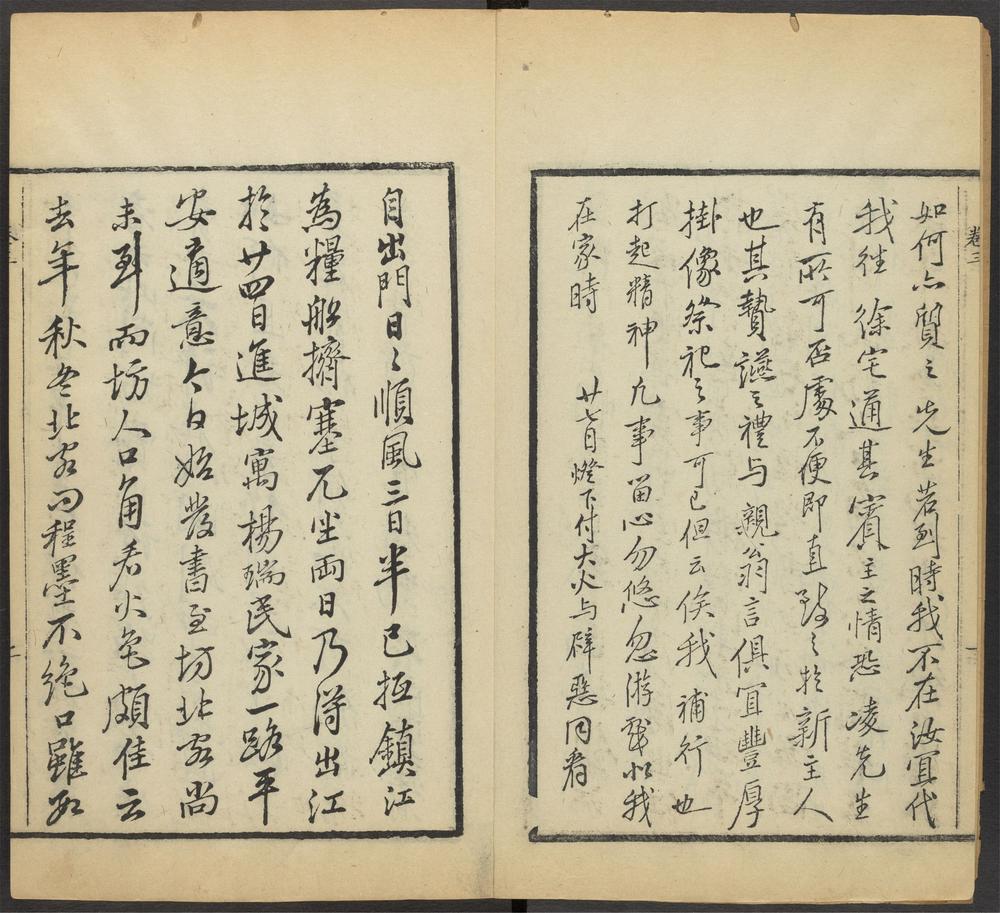 卷三
如何亦質之先生若到時我不在汝宜代
我往徐宅通其賓主之情恐凌先生
有所可否處不便即直致之於新主人
也其贄讌之禮与親翁言俱宜豐厚
掛像祭祀之事可已但云俟我補行也
打起精神凡事留心勿悠忽游戲如我
在家時　廿七日燈下付大火与辟惡同看
自出門日〻順風三日半已抵鎮江
為糧船擠塞兀坐兩日乃得出江
於廿四日進城寓楊瑞民家一路平
安適意今日始發書至坊北客尚
未到而坊人口角看火色頗佳云
去年秋冬北客问程墨不絶口雖不